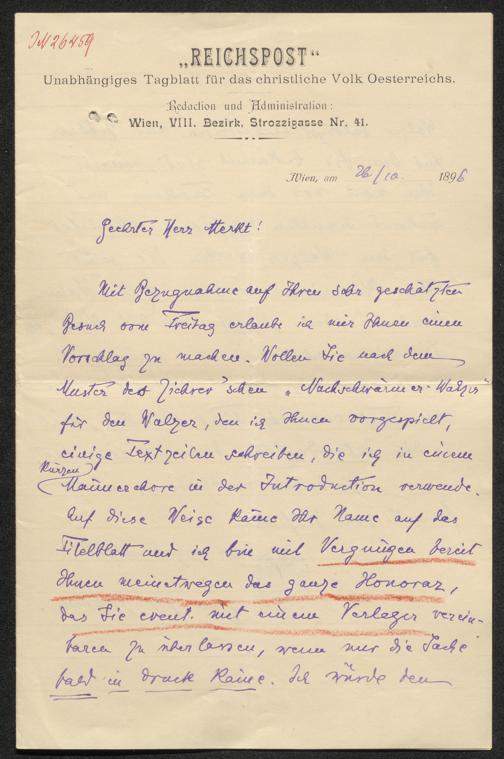 IN 26459
„REICHSPOST“
Unabhängiges Tagblatt für das christliche Volk Oesterreichs.
Redaction und Administration:
Wien, VIII. Bezirk, Strozzigasse Nr. 41.
Wien, am 26/10. 1896
Geehrter Herr Merkt!
Mit Bezugnahme auf Ihren sehr geschätzten
Besuch vom Freitag erlaube ich mir Ihnen einen
Vorschlag zu machen. Wollen Sie nach dem
Muster des Ziehrer'schen „Nachschwärmer-Walzer“
für den Walzer, den ich Ihnen vorgespielt,
einige Textzeilen schreiben, die ich in einem
kurzen
Männerchore in der Introduction verwende.
Auf diese Weise käme Ihr Name auf das
Titelblatt und ich bin mit Vergnügen bereit
Ihnen meinetwegen das ganze Honorar,
das Sie event. mit einem Verleger verein-
baren zu überlassen, wenn nur die Sache
bald in Druck käme. Ich würde dem